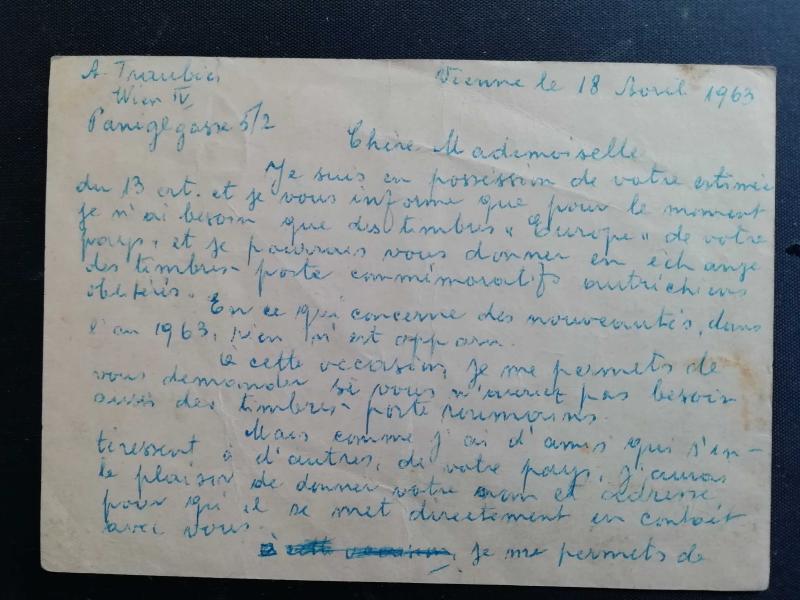 A. Traubici
Wien IV
Panigl gasse 5/2
Vienne le 18 Avril 1963
Chère Mademoiselle
Je suis en possession de votre estimée
du 13 crt. et je vous informe que pour le moment
je n'ai besoin que des timbres "Europe" de votre
pays, et je pourrais vous donner en échange
des timbres-poste commémoratifs autrichiens
oblitérés.
En ce qui concerne des nouveautés, dans
l'an 1963, rien n'est apparu.
à cette occasion, je me permets de
vous demander si vous n'auriez pas besoin
aussi des timbres-poste roumains.
Mais comme j'ai d'amis qui s'in-
téressent à d'autres, de votre pays, j'aurais
le plaisir de donner votre nom et adresse
pour qu'il se met directement en contait
avec vous.
à cette occasion, je me permets de